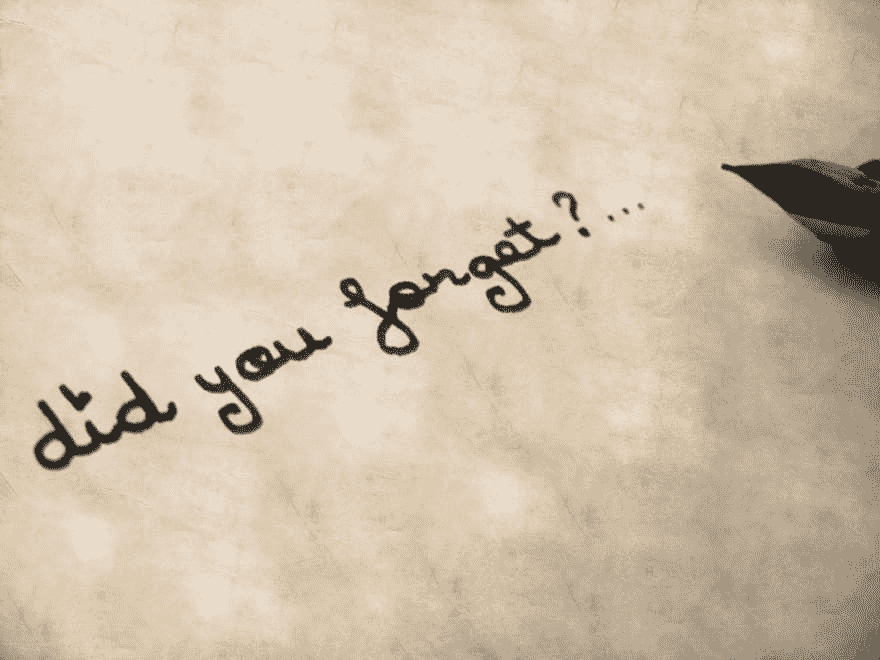 did you forget?...